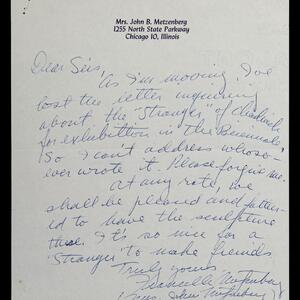 Mrs. John B. Metzenberg
1255 North State Parkway
Chicago 10, Illinois
Dear Sirs,
As I'm moving, I've
lost the letter inquiring
about the "Stranger" of
for exhibition in the
So I can't address whoso-
ever wrote it. Please forgive me.
At any rate, we
shall be pleased and flatter-
ed to have the sculpture
there. It's so nice for a
"Stranger" to make friends
Truly yours,
Metzenberg
(Mrs. John Metzenberg)